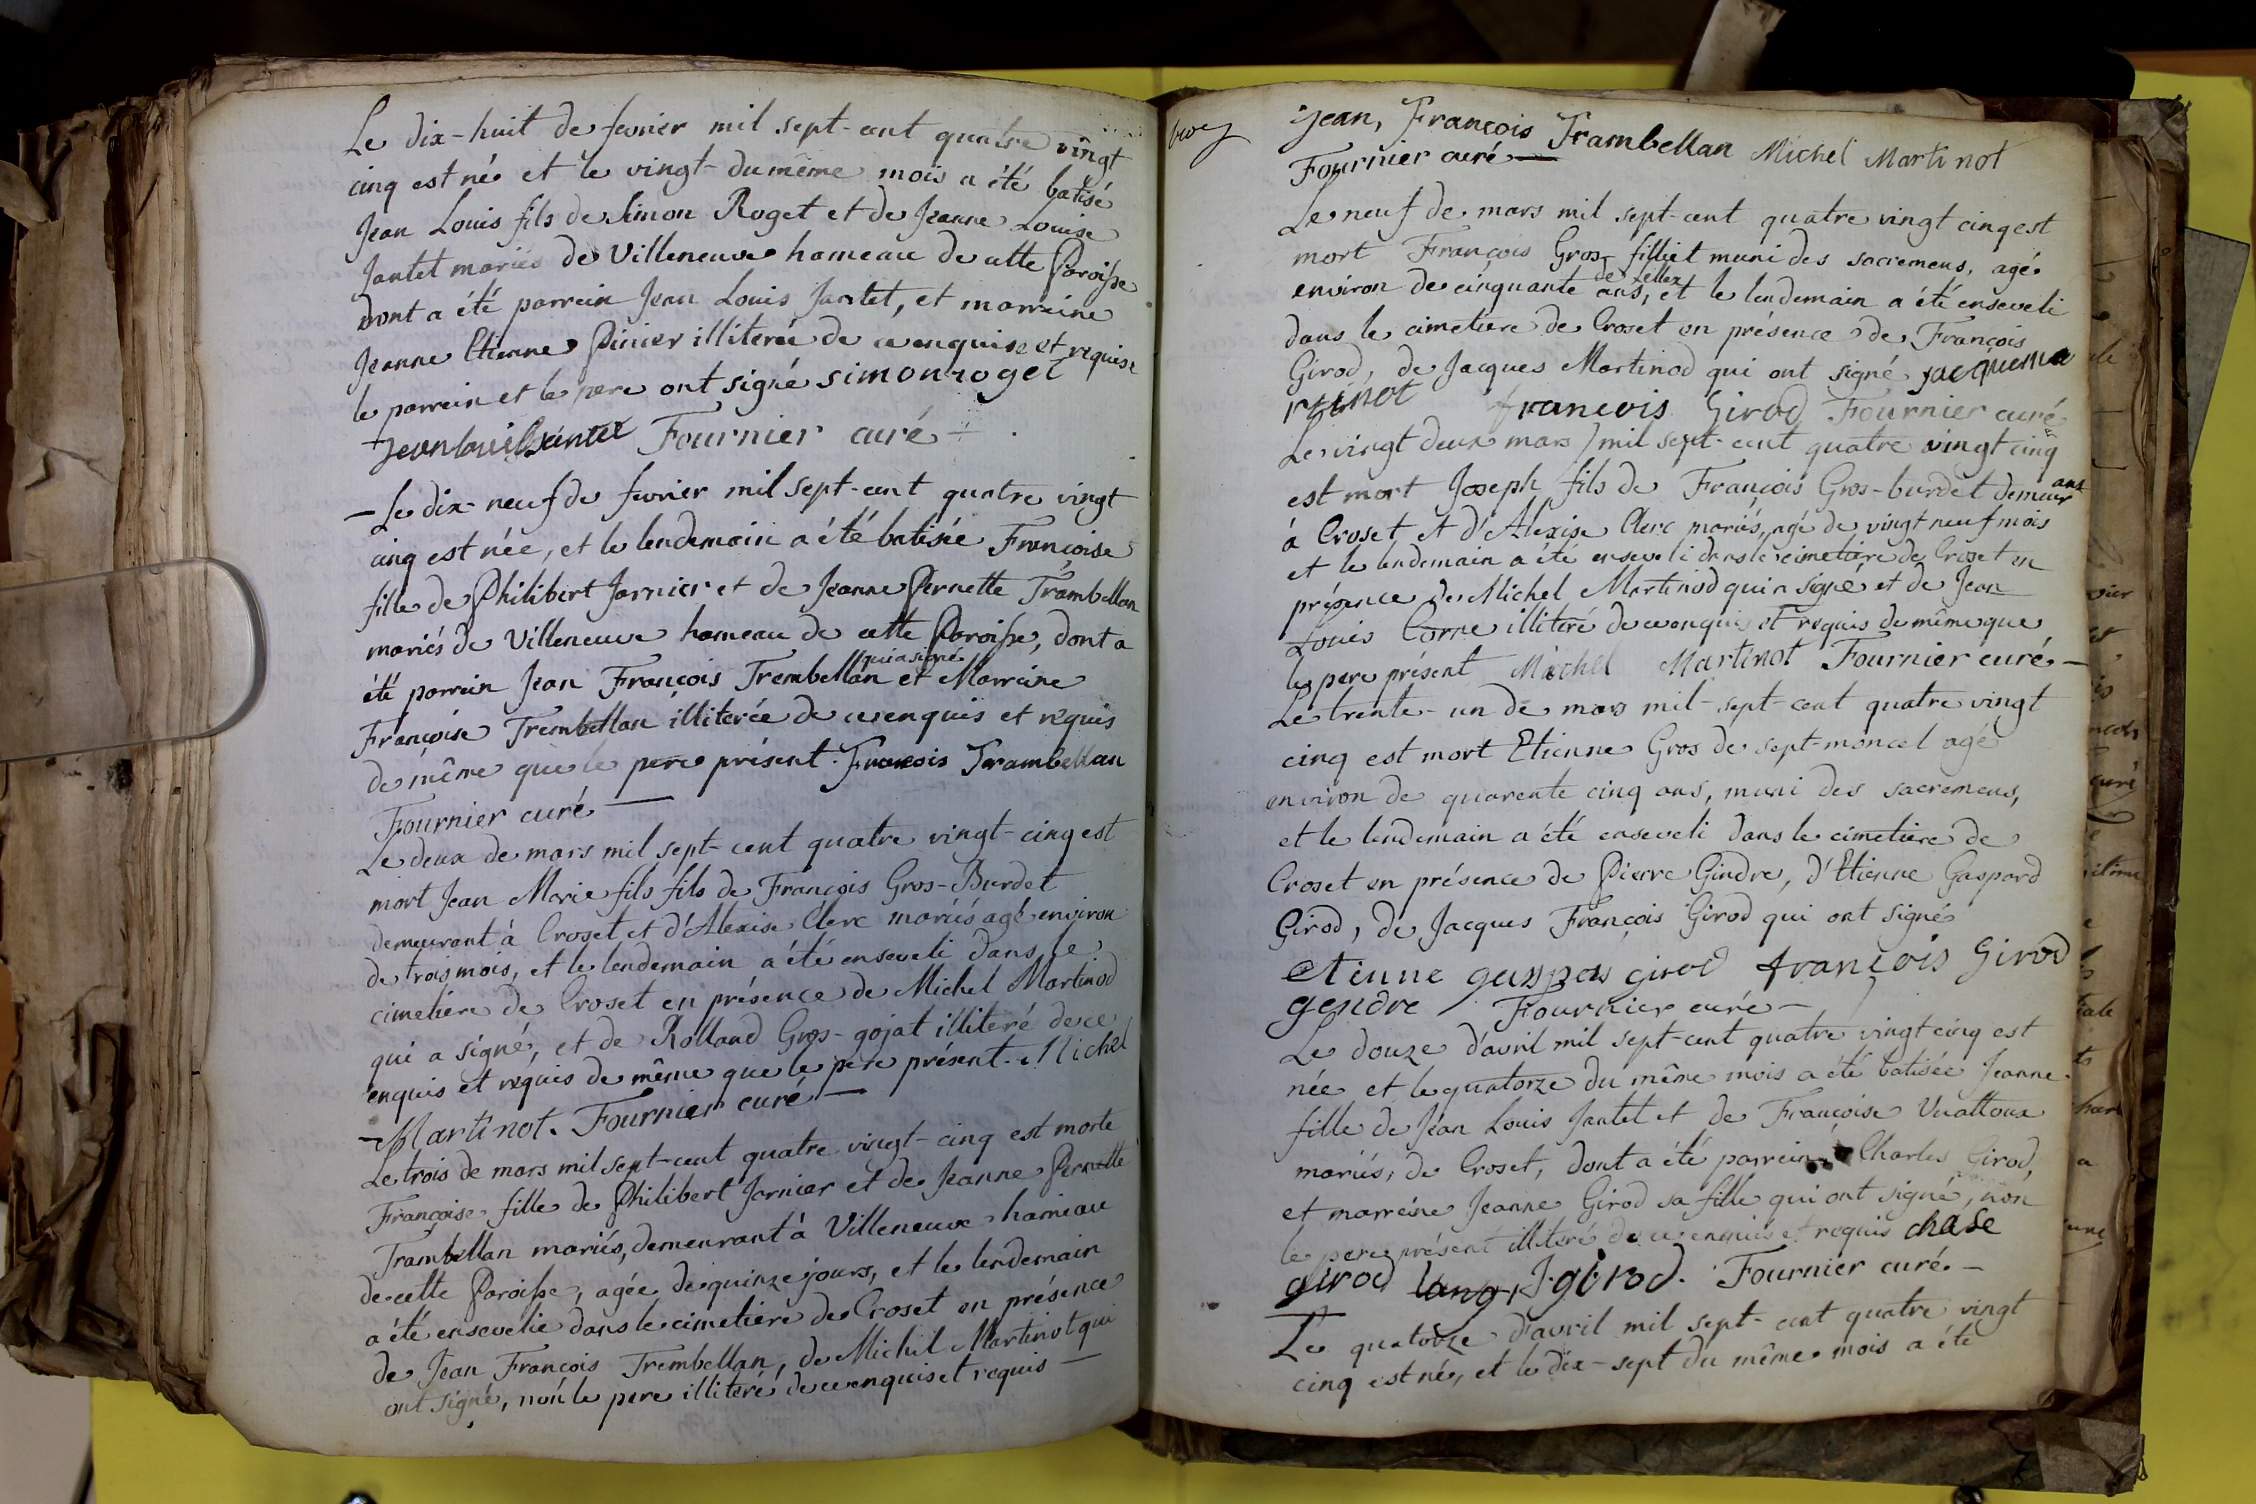 Le dix-huit de fevrier mil sept-cent quatre vingt
cinq est né et le vingt du même mois a été batisé
Jean Louis fils de Simon Roget et de Jeanne Louise
Jantet mariés de Villeneuve hameau de cette Paroisse
dont a été parrein Jean Louis Jantet, et marreine
Jeanne Etienne Pinier illiterée de ce enquise et requise
le parrein et le pere ont signé simon roget
jean louis Fournier curé
Le dix-neuf de fevrier mil sept-cent quatre vingt
cinq est née, et le lendemain a été batisée Françoise
fille de Philibert Jarnier et de Jeanne Pernette Trambellan
mariés de Villeneuve hameau de cette Paroisse, dont a
été parrein Jean François Trembellan qui a signé et Marreine
Françoise Trembellan illiterée de ce enquis et requis
de même que le pere présent. François Trambellan
Fournier curé
Le deux de mars mil sept-cent quatre vingt-cinq est
mort Jean Marie fils fils de François Gros-Burdet
demeurant à Croset et d'Alexise Clerc mariés agé environ
de trois mois, et le lendemain a été enseveli dans le
cimetiere de Croset en présence de Michel Martinod
qui a signé, et de Rolland Gros-gojat illiteré de ce
enquis et requis de même que le pere présent. Michel
Martinot. Fournier curé
Le trois de mars mil sept-cent quatre vingt-cinq est morte
Françoise fille de Philibert Jarnier et de Jeanne Pernette
Trambellan mariés, demeurant à Villeneuve hameau
de cette Paroisse, agée de quinze jours, et le lendemain
a été ensevelie dans le cimetiere de Croset en présence
de Jean François Trembellan, de Michel Martinot qui
ont signé, non le pere illiteré de ce enquis et requis
Jean, François Trambellan Michel Martinot
Fournier curé
Le neuf de mars mil sept-cent quatre vingt cinq est
mort François Gros filliet de Lellex muni des sacremens, agé
environ de cinquante ans, et le lendemain a été enseveli
dans le cimetiere de Croset en présence de François
Girod, de Jacques Martinod qui ont signé jacque ma
rtinot francois Girod Fournier curé
Le vingt deux mars mil sept-cent quatre vingt cinq
est mort Joseph fils de François Gros-burdet demeurant
à Croset et d'Alexise Clerc mariés, agé de vingt neuf mois
et le lendemain a été enseveli dans le cimetiere de Croset en
présence de Michel Martinod qui a signé et de Jean
Louis Corne illiteré de ce enquis et requis de même que
le pere présent Michel Martinot Fournier curé
Le trente-un de mars mil-sept-cent quatre vingt
cinq est mort Etienne Gros de sept-moncel agé
environ de quarente cinq ans, muni des sacremens,
et le lendemain a été enseveli dans le cimetiere de
Croset en présence de Pierre Gindre, d'Etienne Gaspard
Girod, de Jacques François Girod qui ont signé
etienne girod françois Girod
gendre Fournier curé
Le douze d'avril mil sept-cent quatre vingt cinq est
née et le quatorze du même mois a été batisée Jeanne
fille de Jean Louis Jantet et de Françoise Vuattoux
mariés, de Croset, dont a été parrein Charles Girod,
et marreine Jeanne Girod sa fille qui ont signé, non
le pere présent illiteré de ce enquis et requis
girod J. girod. Fournier curé.
Le quatorze d'avril mil sept-cent quatre vingt
cinq est né, et le dix-sept du même mois a été